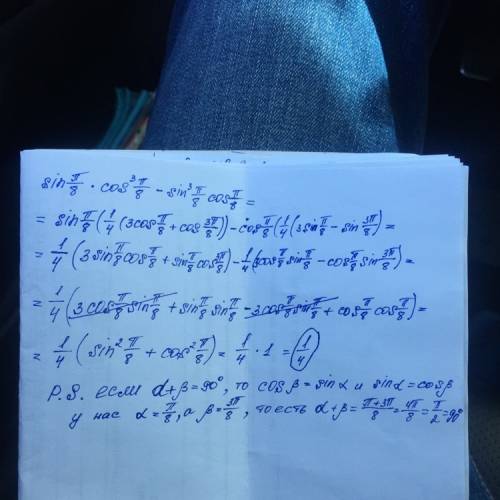 sin π/8 · cos³ π/8 - sin³ π/8 cos π/8 =
= sin π/8 (1/4 (3cos π/8 + cos 3π/8)) - cos π/8 (1/4 (3sin π/8 - sin 3π/8) =
= 1/4 (3 sin π/8 cos π/8 + sin π/8 cos 3π/8) - 1/4 (3cos π/8 sin π/8 - cos π/8 sin 3π/8) =
= 1/4 (3 cos π/8 sin π/8 + sin π/8 sin π/8 - 3 cos π/8 sin π/8 + cos π/8 cos π/8) =
= 1/4 (sin² π/8 + cos² π/8) = 1/4 · 1 = 1/4
P.S. если α+β=90°, то cos β = sin α и sin α = cos β
у нас α = π/8, а β = 3π/8, то есть α+β = π+3π/8 = 4π/8 = π/2 = 90°